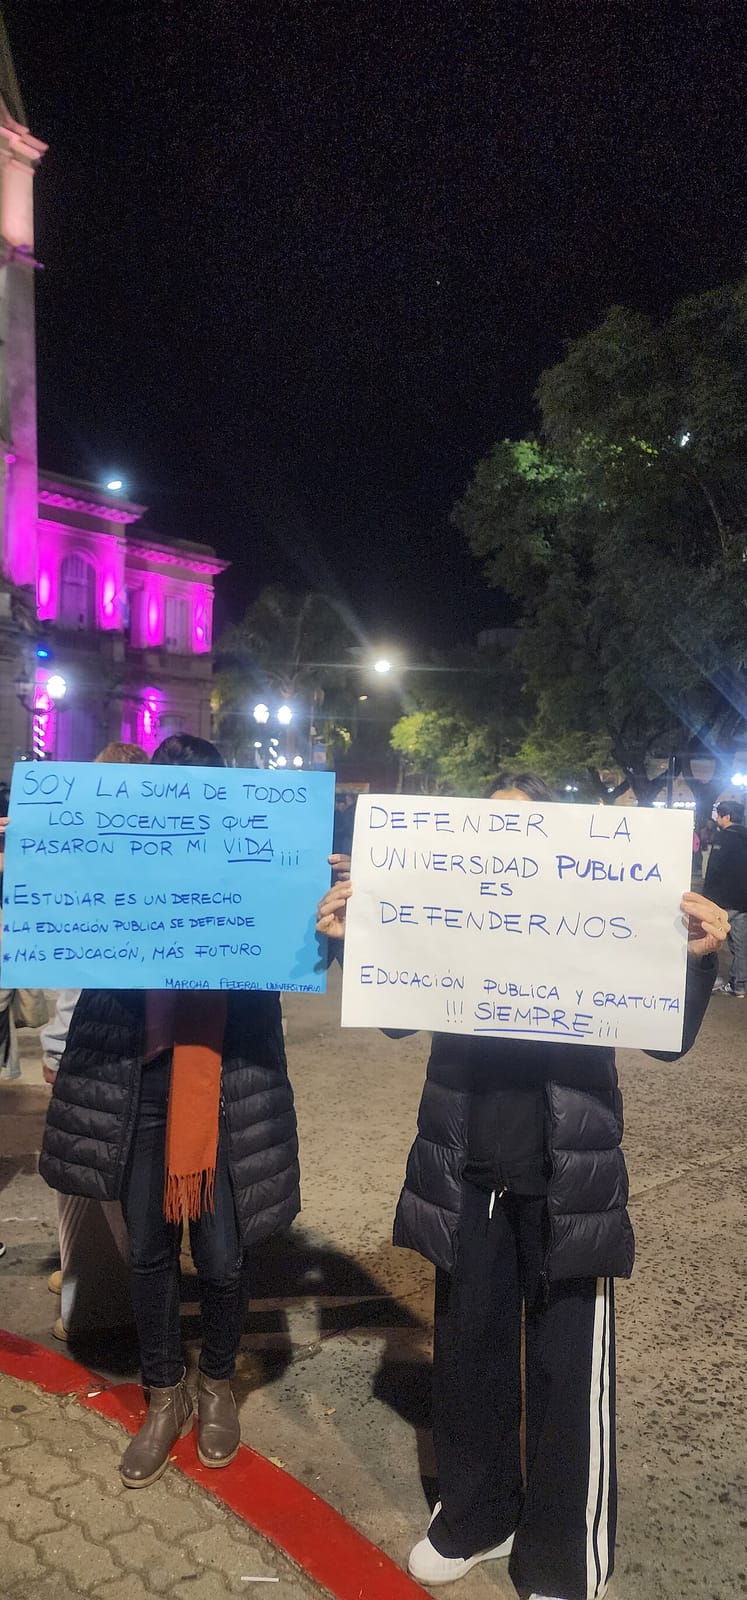 SOY LA SUMA DE TODOS
LOS DOCENTES QUE
PASARON POR MI VIDA ¡¡¡
*ESTUDIAR ES UN DERECHO
*LA EDUCACIÓN PUBLICA SE DEFIENDE
*MÁS EDUCACIÓN, MÁS FUTURO
MARCHA FEDERAL UNIVERSITARIA
DEFENDER LA
UNIVERSIDAD PUBLICA
ES
DEFENDERNOS.
EDUCACIÓN PUBLICA Y GRATUITA
!!! SIEMPRE ¡¡¡